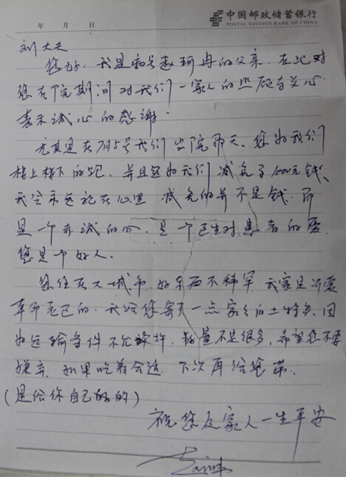 年 月 日
中国邮政储蓄银行
POSTAL SAVINGS BANK OF CHINA
刘大夫
您好，我是 的父亲，在此对
您在院期间对我们一家人的照顾与关心
表示诚心的感谢。
尤其是在 5号我们出院那天，您为我们
楼上楼下的跑，并且还为我们减免了1000元钱，
我会永远记在心里 减免的并不是钱，而
是一个真诚的心，是一个医生对患者的爱，
您是个好人。
您住在大城市，好东西不稀罕 我家是内蒙
的，我给您寄了一点家乡的土特产，因
为运输条件不允许， 数量不是很多，希望您不要
嫌弃，如果吃着合适，下次再给您带。
（是给你自己 的）
祝您及家人一生平安